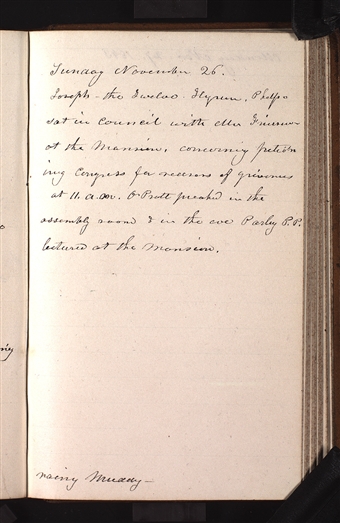 Sunday November 26.
Joseph - the Twelve Hyrum, Phelps
sat in council with Mr Frierson
at the Mansion, concerning petition
ing Congress for redress of grievances
at 11. a.m. O Pratt preachd in the
assembly room & in the eve Parley P. P.
lectured at the mansion.
rainy Muddy -